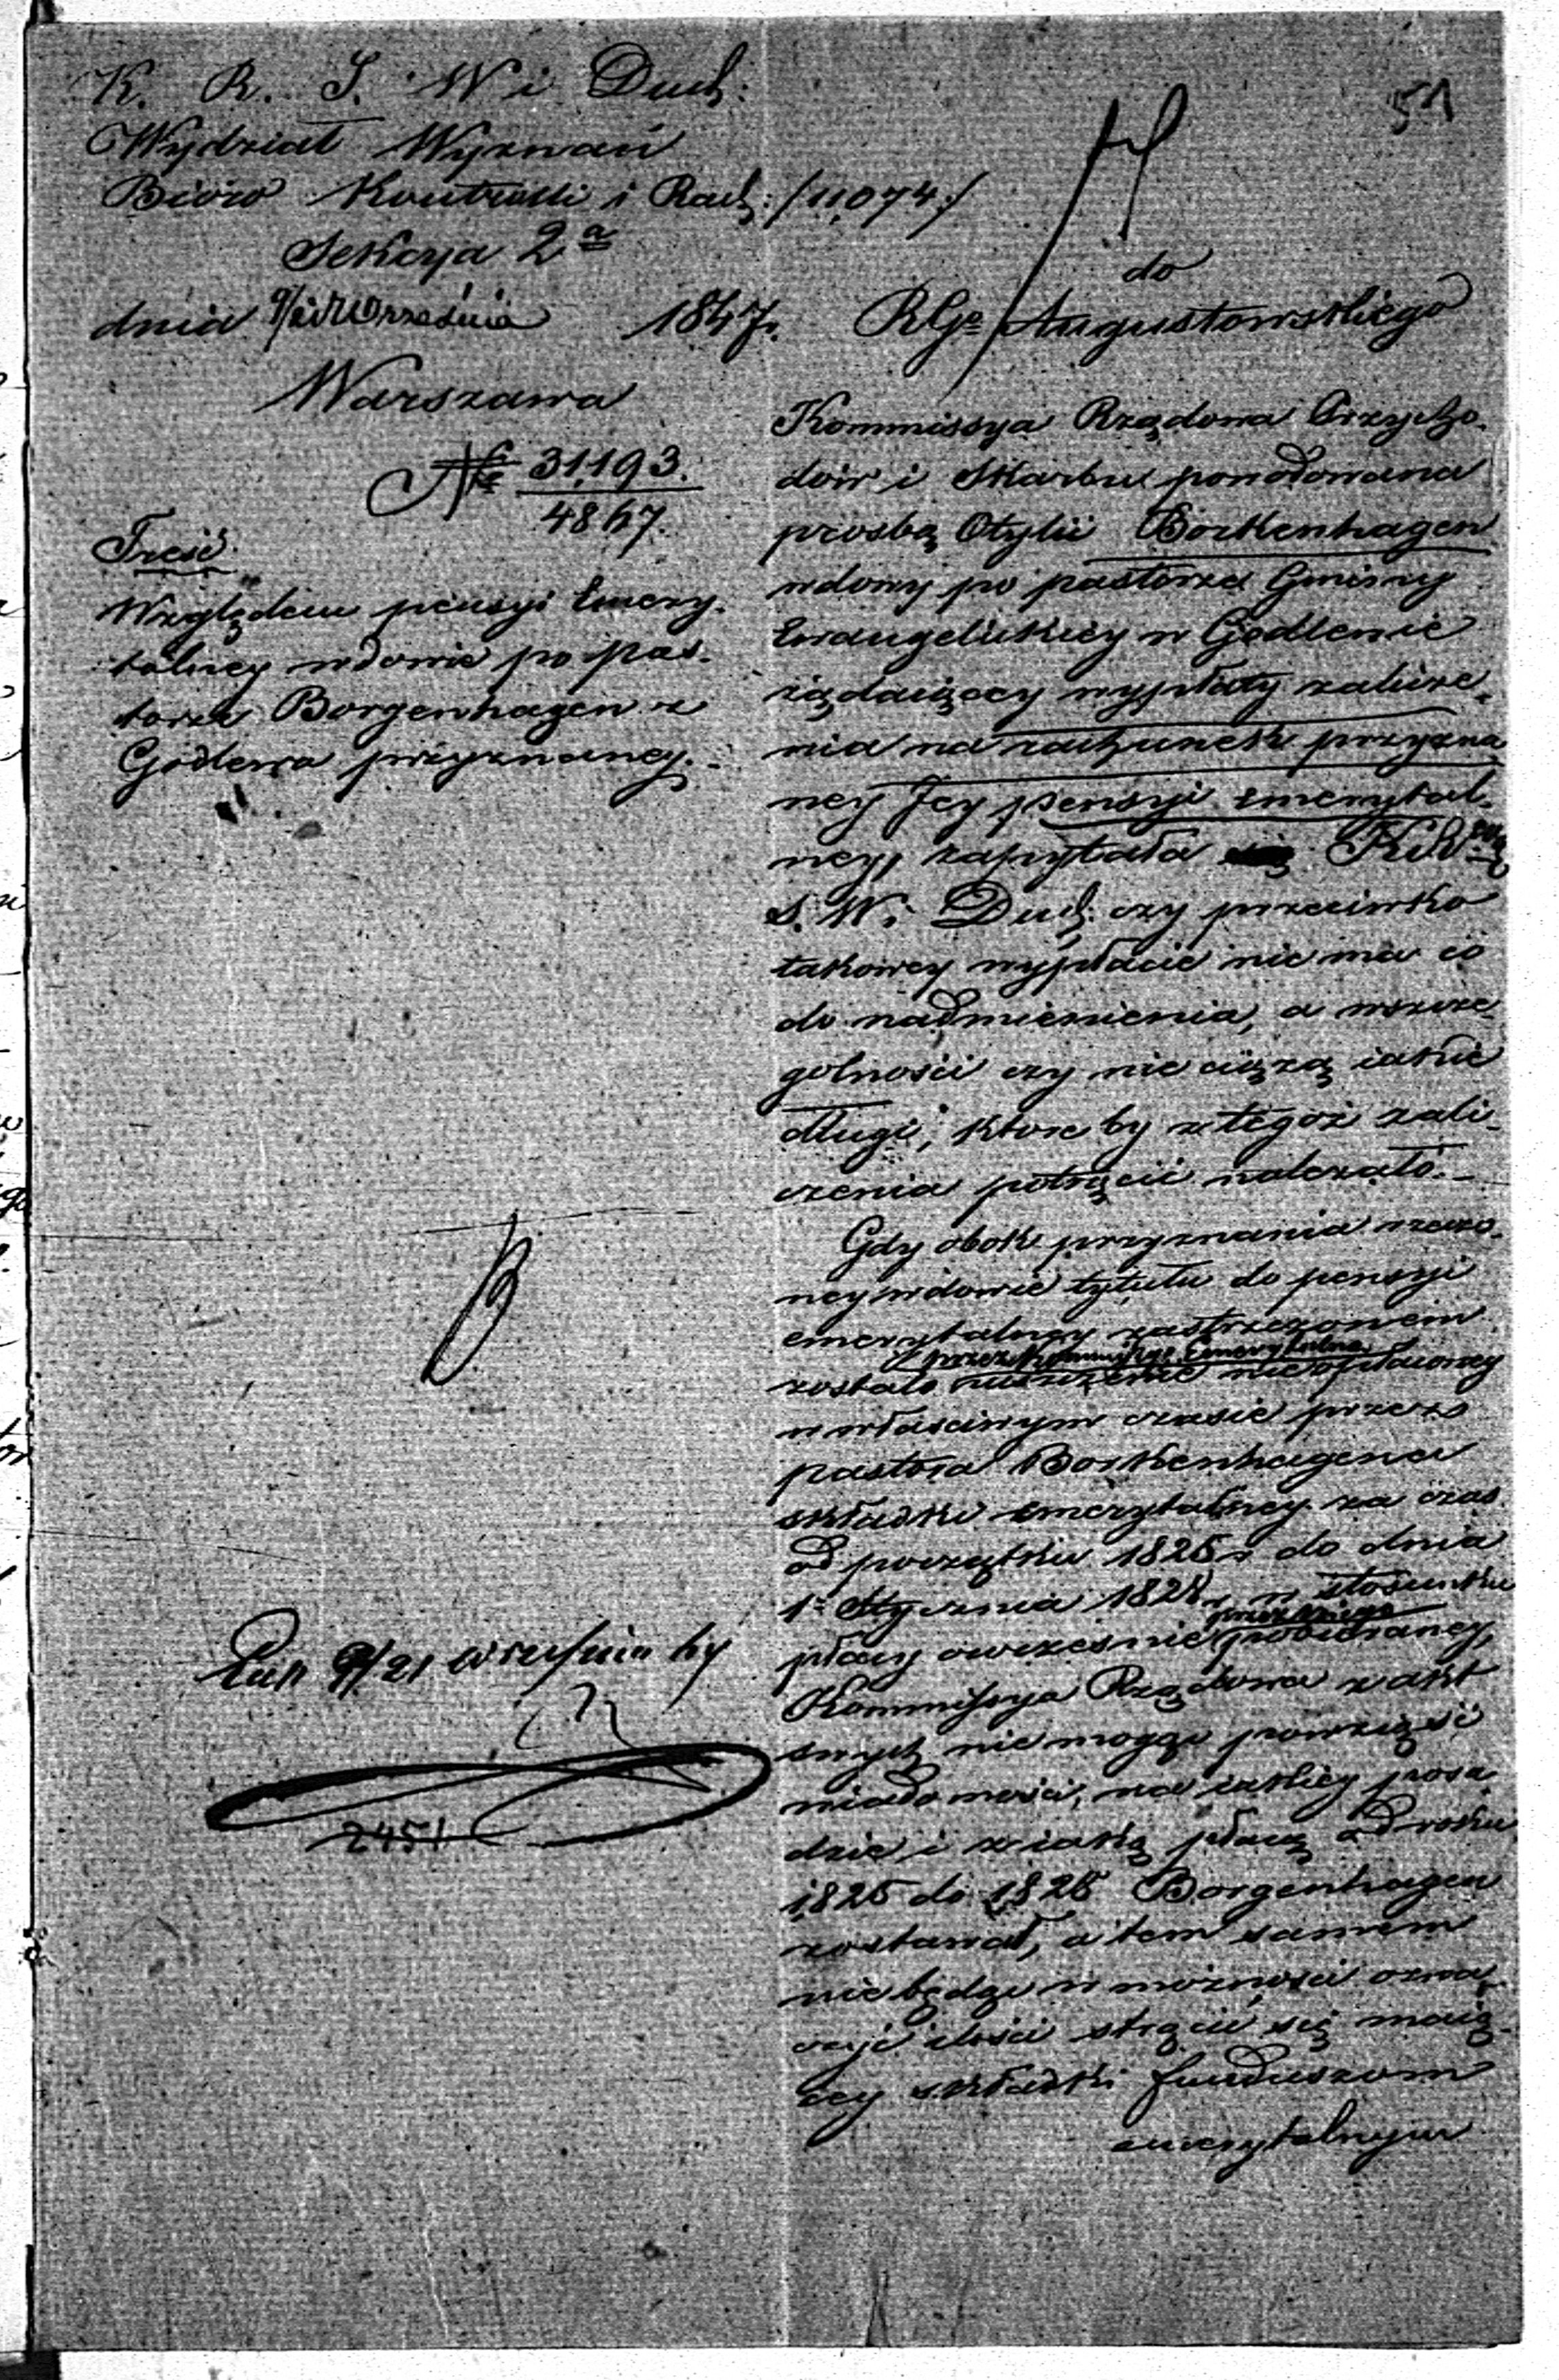 51
K. R. S. W i Duch:
Wydział Wyznań
Bióro Kontrolli i Rach: /11,074/
Sekcya 2a
dnia 9/21 Września 1847r.
Warszawa
№ 31,193.
4867.
Treść
Względem pensyi Emery-
talney wdowie po Pas-
torze Borgenhagen z
Godlewa przyznaney.
Exp 9/21 Września
2451
do
RGo Augustowskiego
Kommissya Rządowa Przycho-
dow i Skarbu powodowana
prosbą Otylii Borkenhagen
wdowy po pastorze Gminy
Ewangelickiey w Godlewie
żądaiącey wypłaty zalicze-
nia na rachunek przyzna
ney Jey pensyi Emerytal-
ney, zapytała
S. W i Duch: czy przeciwko
takowey wypłacie nie ma co
do nadmienienia, a wszcze-
golności czy nie ciążą iakie
długi, ktore by z tegoż zali-
czenia potrącić należało.
Gdy obok przyznania rzeczo-
ney wdowie tytułu do pensyi
emerytalney zastrzeżonem
przez Kommissyę Emerytalną
zostało nieopłaconey
w właściwym czasie przez
pastora Borkenhagena
składki emerytalney za czas
od początku 1825 r do dnia
1o Stycznia 1828 r. w stosunku
przez niego
płacy owczesnie pobieraney,
Kommissya Rządowa z akt
swych nie mogąc powziąść
wiadomości, na iakiey posa
dzie i z iaką płacą od roku
1825 do 1828 Borgenhagen
zostawał, a tem samem
nie będąc w możności ozna-
czyć ilości strącić się maią-
cey składki funduszom
emerytalnym